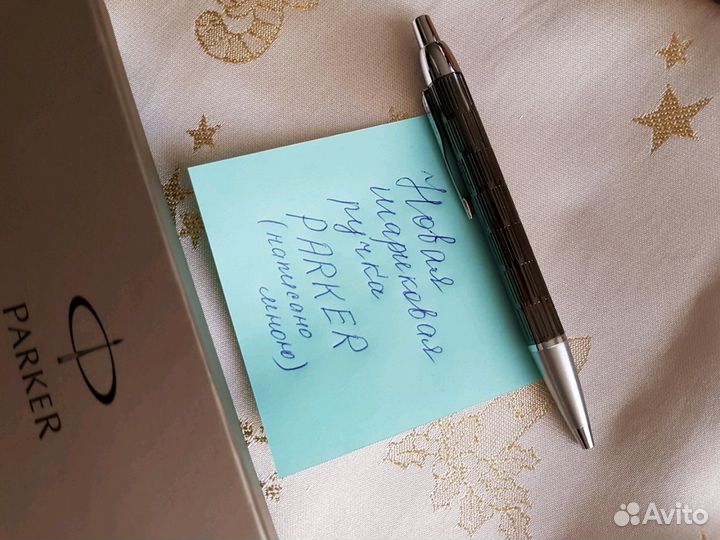 Новая
шариковая
ручка
PARKER
(написано
мною)
PARKER
Avito